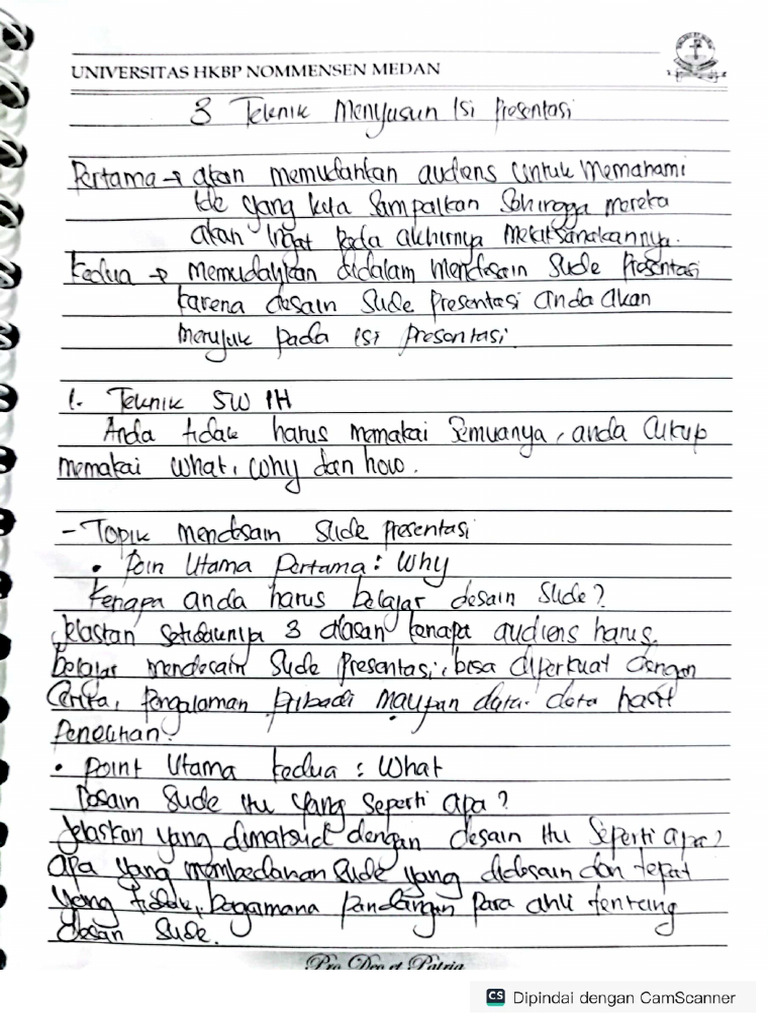 UNIVERSITAS HKBP NOMMENSEN MEDAN
3 Teknik Menyusun Isi Presentasi
Pertama → akan memudahkan audiens untuk memahami
Ide yang kita Sampaikan Sehingga mereka
akan Ingat pada akhirnya melaksanakannya.
Kedua → memudahkan didalam mendesain Slide Presentasi
karena desain Slide Presentasi anda akan
merujuk pada isi presentasi.
1. Teknik 5W 1H
Anda tidak harus memakai Semuanya, anda cukup
memakai what, why dan how.
- Topik mendesain Slide presentasi
• Poin Utama Pertama : Why
Kenapa anda harus belajar desain Slide?
Jelaskan Setidaknya 3 alasan kenapa audiens harus
belajar mendesain Slide Presentasi, bisa diperkuat dengan
Cerita, Pengalaman pribadi maupun data-data hasil
Penelitian.
• Point Utama kedua : What
Desain Slide itu yang seperti apa?
Jelaskan yang dimaksud dengan desain itu Seperti apa?
apa yang membedakan Slide yang didesain dan tepat
yang tidak, bagaimana pandangan para ahli tentang
desain Slide.
Pro Deo et Patria
CS Dipindai dengan CamScanner